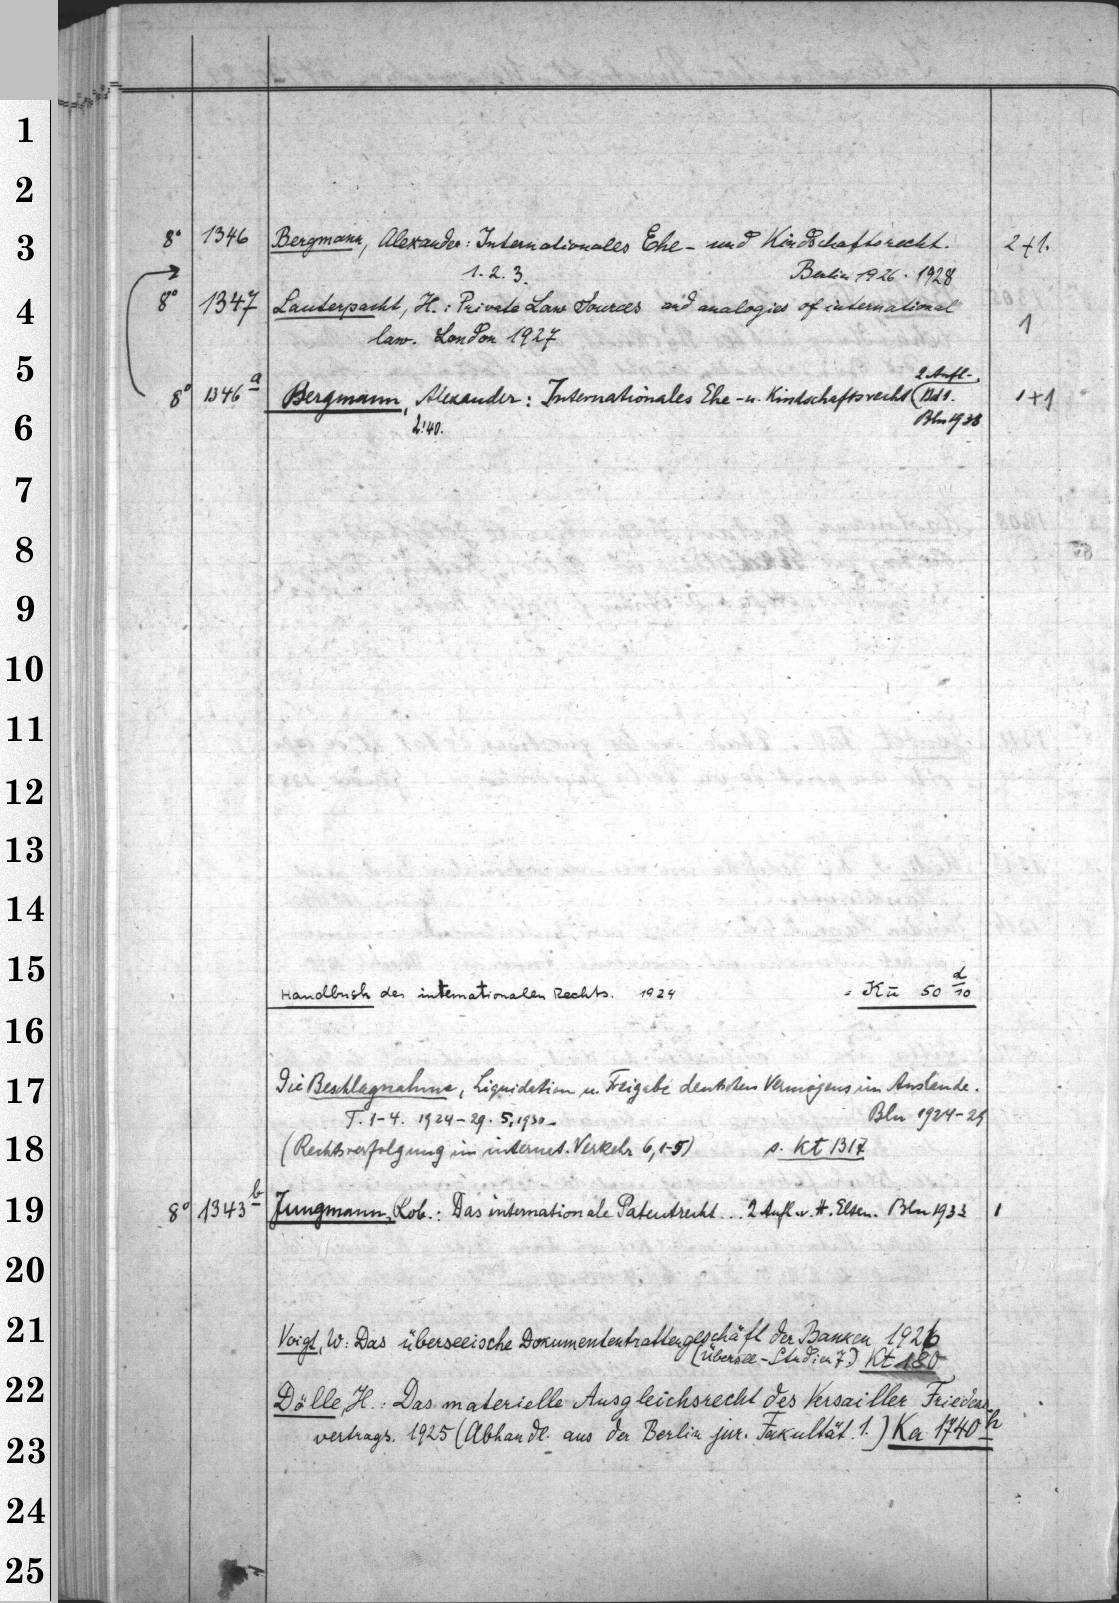 1
2
3
4
5
6
7
8
9
10
11
12
13
14
15
16
17
18
19
20
21
22
23
24
25
8° 1346 Bergmann, Alexander: Internationales Ehe- und Kindschaftsrecht. 2+1.
1. 2. 3. Berlin 1926. 1928
8° 1347 Lauterpacht, H.: Private Law Sources and analogies of international
law. London 1927 1
8° 1346 a Bergmann, Alexander: Internationales Ehe- u. Kindschaftsrecht (2 Aufl. Bd 1. Bln 1938 1+1
2:40.
Handbuch des internationalen Rechts. 1924 = Kü 50 d/10
Die Beschlagnahme, Liquidation u. Freigabe deutschen Vermögens im Auslande.
T. 1-4. 1924-29. 5, 1930- Bln 1924-29
(Rechtsverfolgung im internat. Verkehr 6, 1-5) s. Kt 1317
8° 1343 b Jungmann, Rob.: Das internationale Patentrecht... 2 Aufl. v. H. Elten. Bln 1933 1
Voigt, W: Das überseeische Dokumententrattengeschäft der Banken 1926
(Übersee-Studien 7) Kt 180
Dölle, H.: Das materielle Ausgleichsrecht des Versailler Friedens-
vertrags. 1925 (Abhandl. aus der Berlin jur. Fakultät 1.) Ka 1740 h